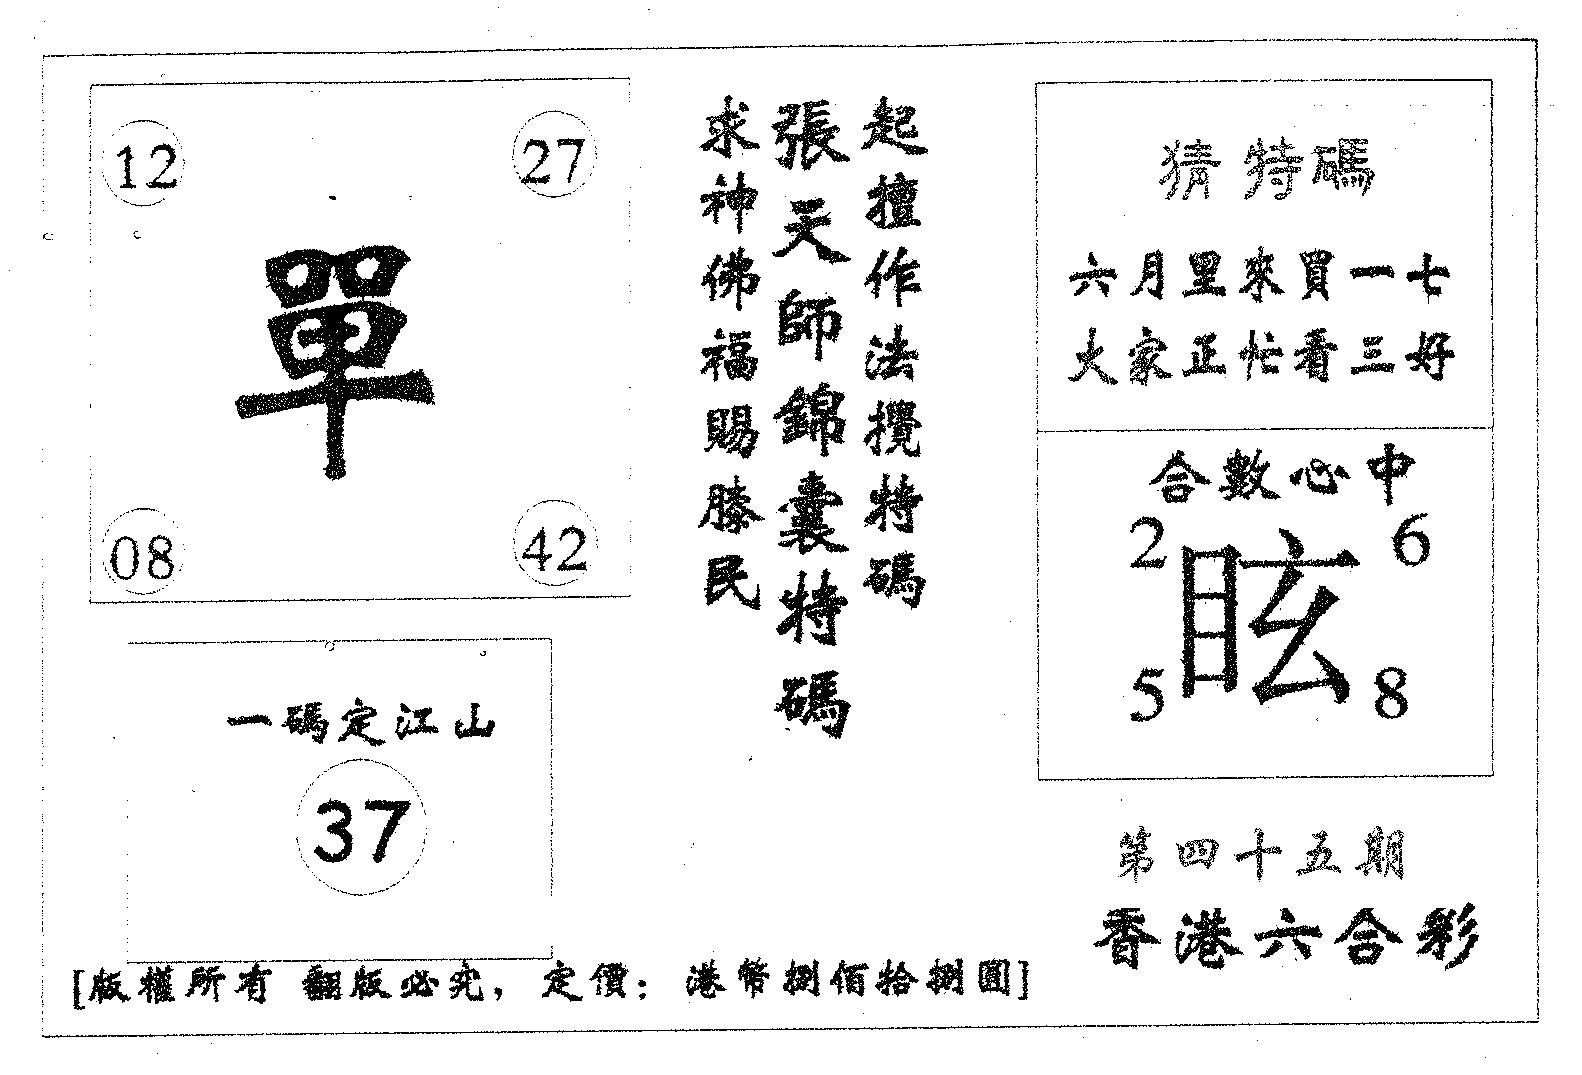 香港六合彩
第四十五期
猜特碼
六月里來買一七
大家正忙看三好
合數心中
2 6
眩
5 8
起擅作法攪特碼
張天師錦囊特碼
求神佛福賜滕民
12 27
單
08 42
一碼定江山
37
[版權所有 翻版必究，定價：港幣捌佰拾捌圓]